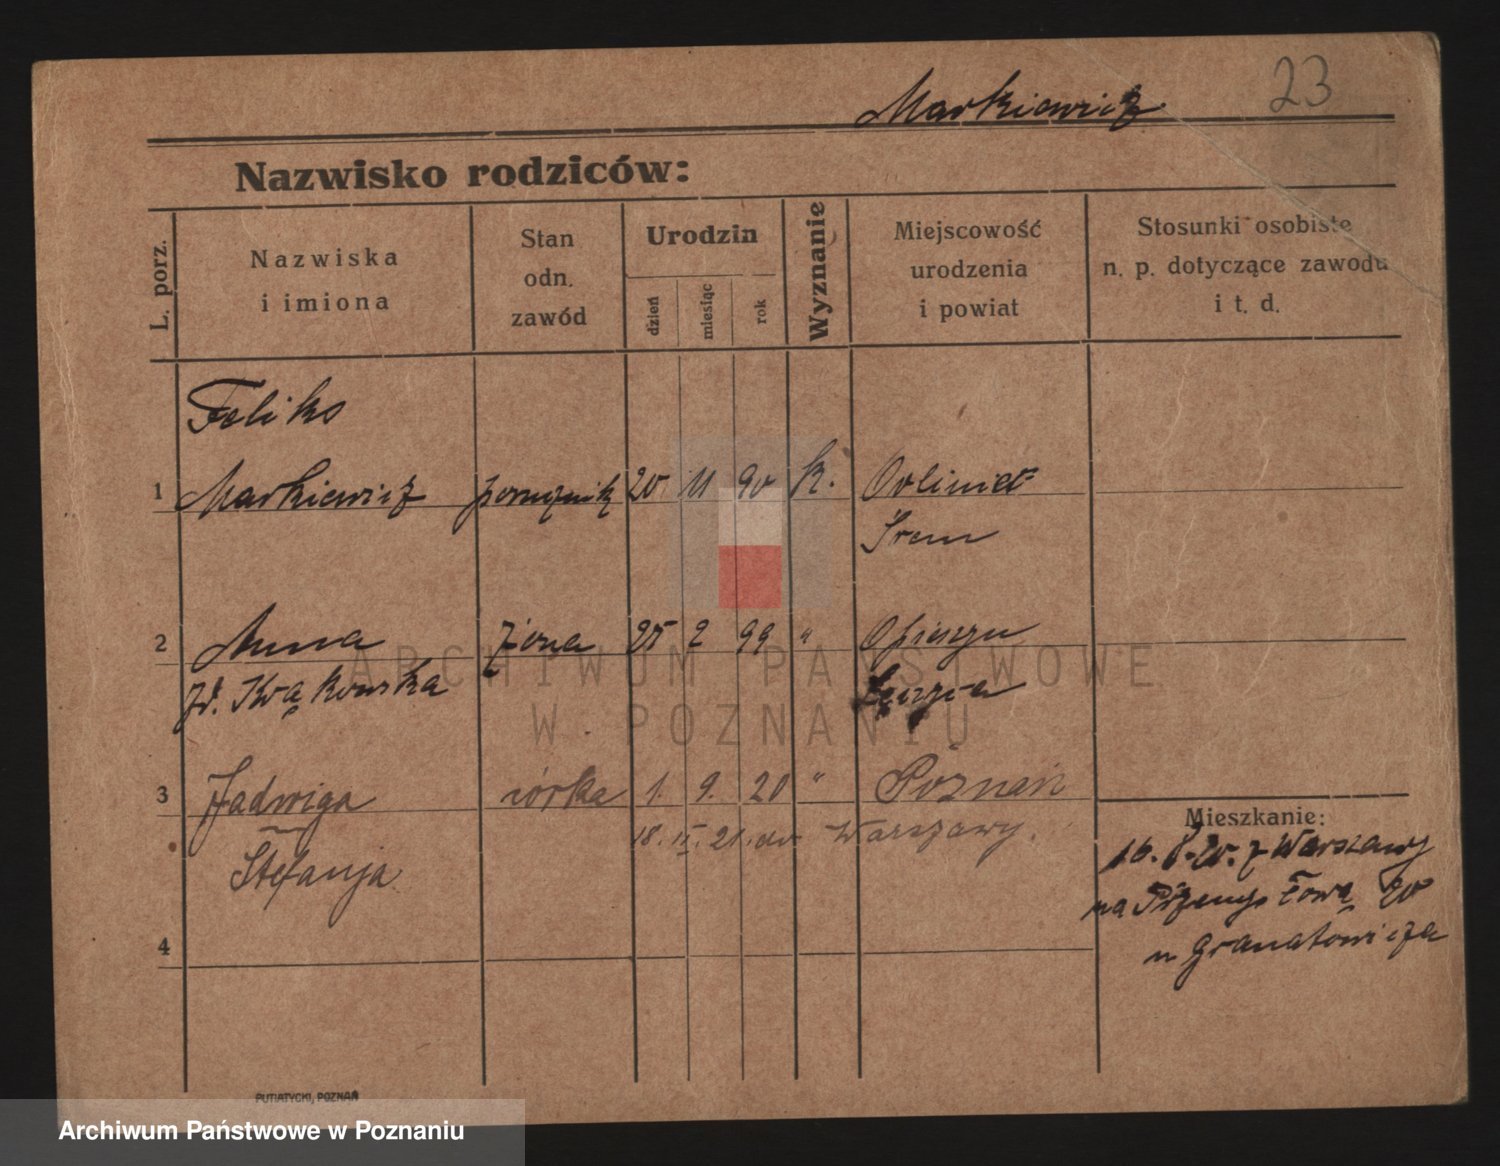 Markiewicz 23
Nazwisko rodziców:
L. porz.
Nazwiska
i imiona
Stan
odn.
zawód
Urodzin
dzień
miesiąc
rok
Wyznanie
Miejscowość
urodzenia
i powiat
Stosunki osobiste
n. p. dotyczące zawodu
i t. d.
Feliks
1 Markiewicz porucznik 20 11 90 k.
Śrem
2 Anna żona 25 2 99 "
ARCHIWUM PAŃSTWOWE
W POZNANIU
3 Jadwiga córka 1. 9. 20 " Poznań
Stefanja
18. 21. do Warszawy.
Mieszkanie:
16. 8. 20. z Warszawy
na Przemysłową 20
u Granatowicza
4
PUTIATYCKI, POZNAŃ
Archiwum Państwowe w Poznaniu